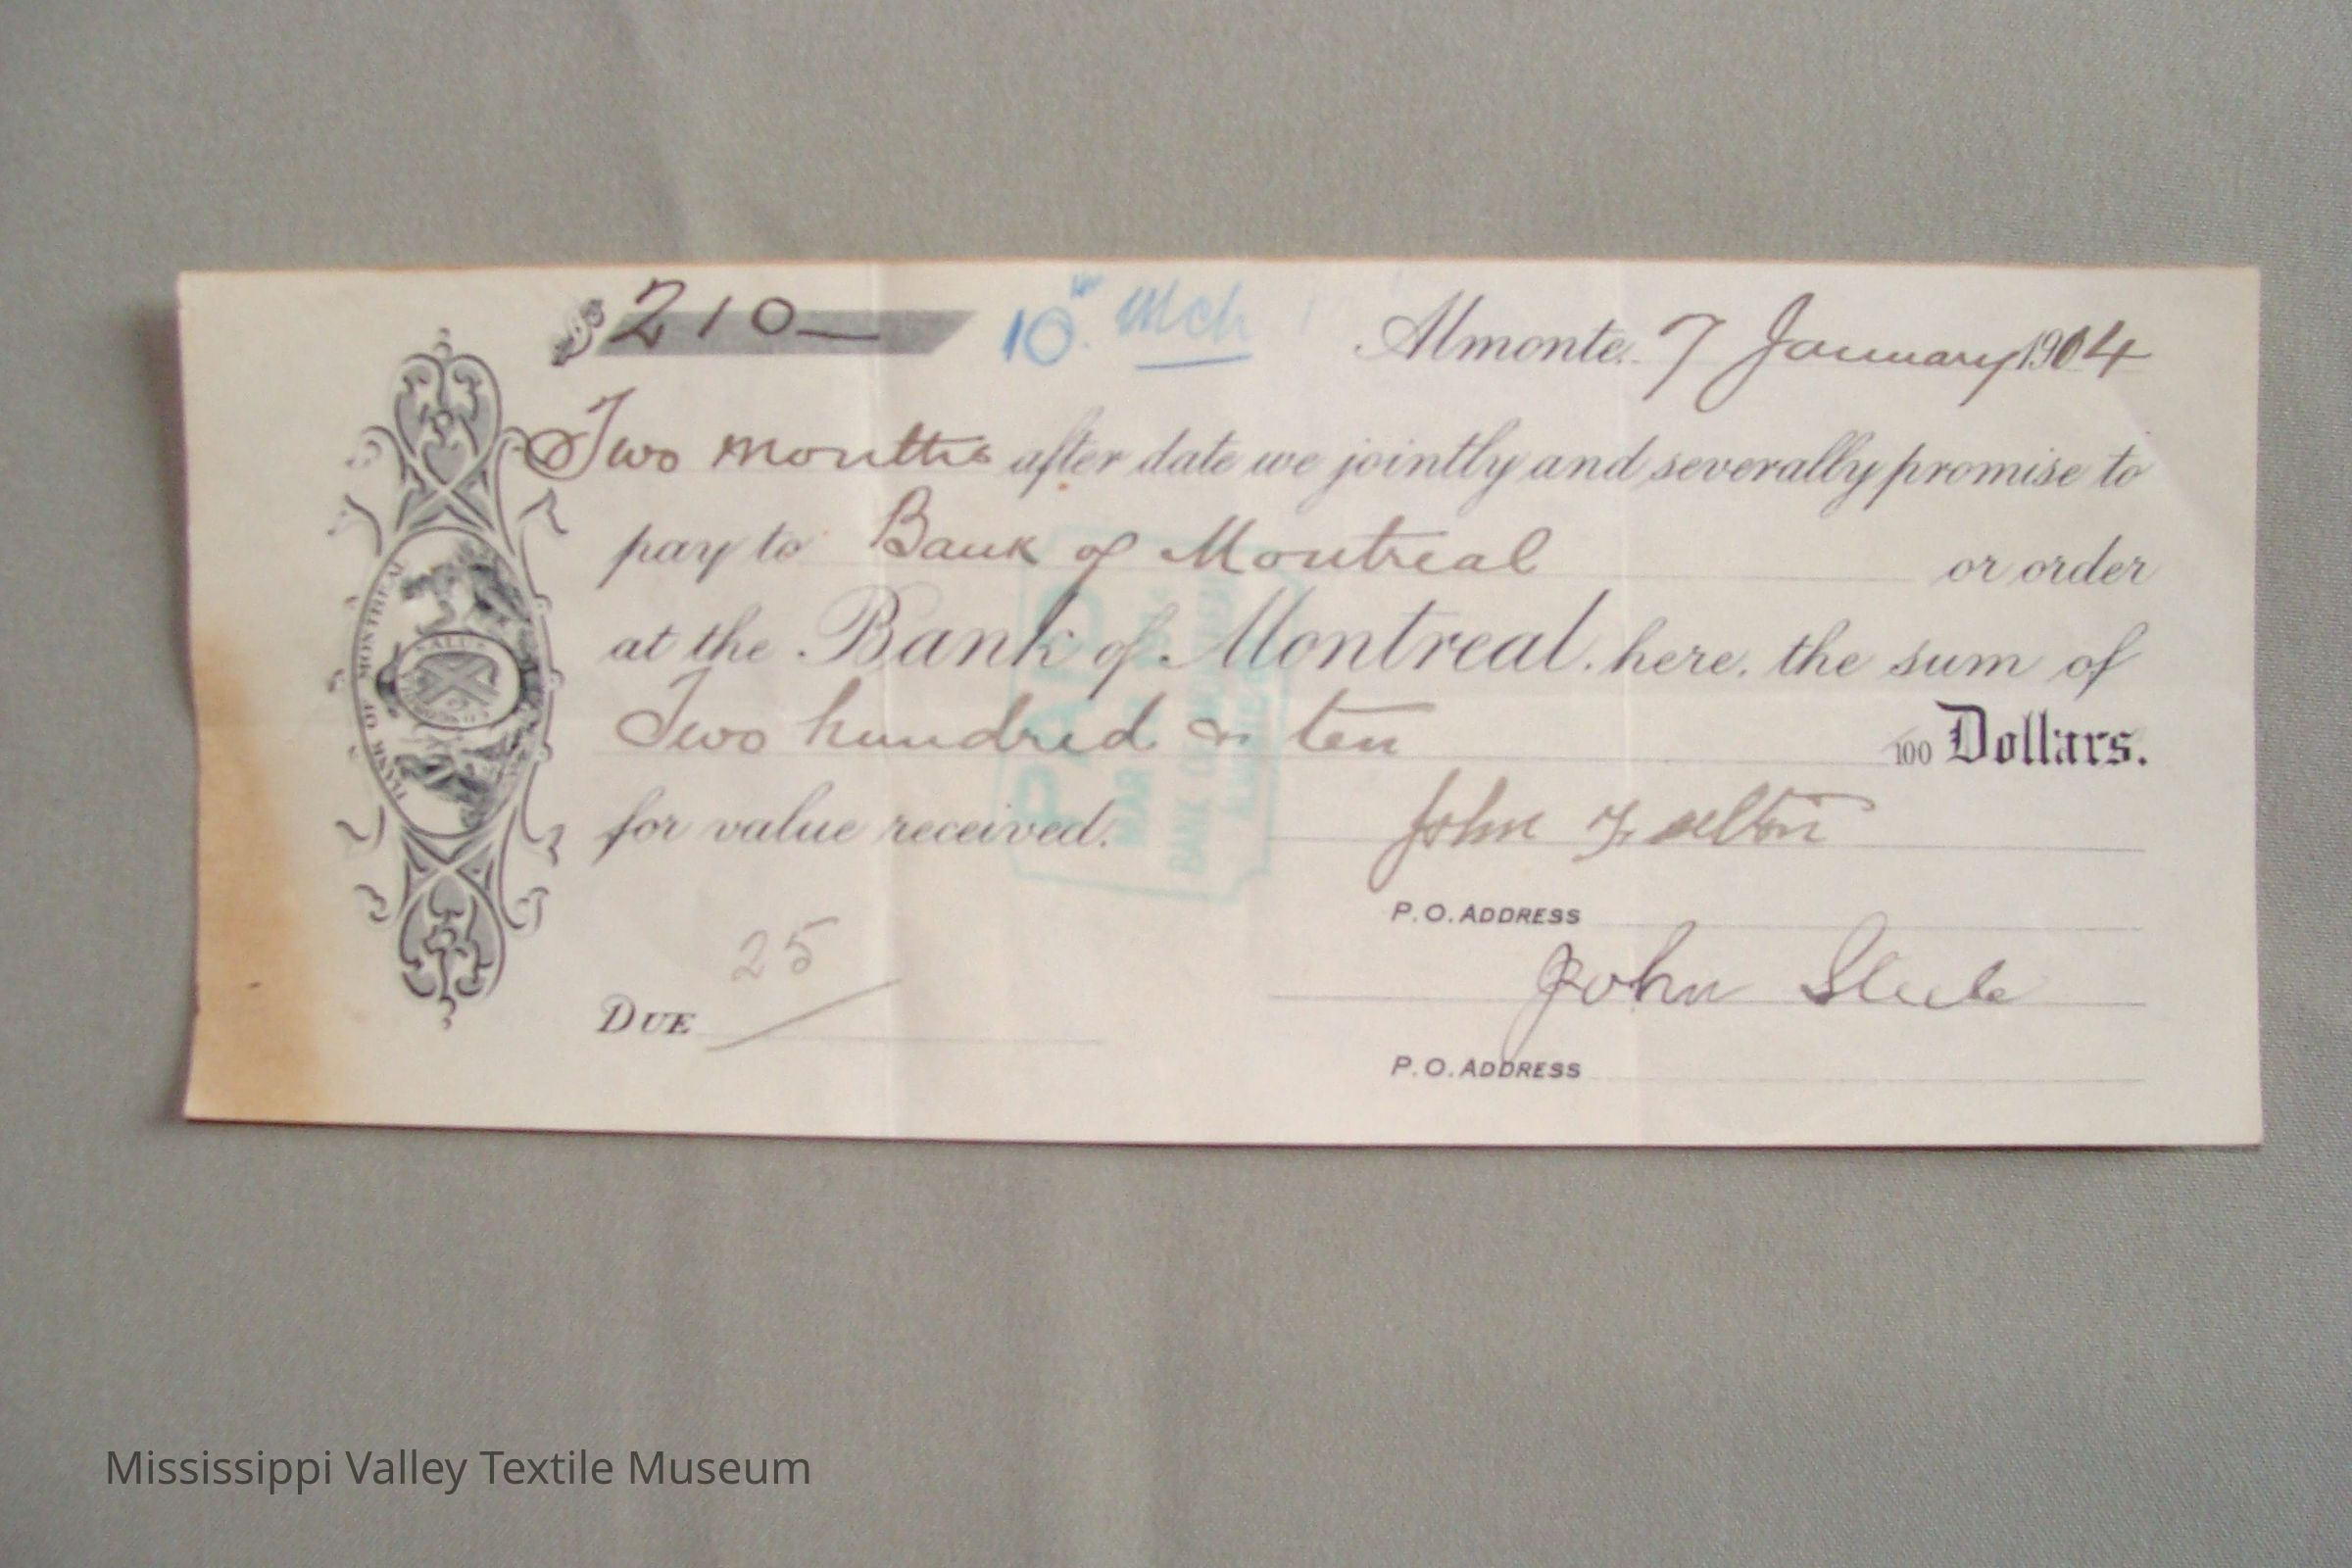 $ 210— 10th Mch Almonte. 7 January 1904
Two months after date we jointly and severally promise to
pay to Bank of Montreal or order
at the Bank of Montreal. here. the sum of
Two hundred & ten 100 Dollars.
for value received. John
P.O. ADDRESS
25
John
DUE
P.O. ADDRESS
BANK OF MONTREAL
PAID
MAR
Mississippi Valley Textile Museum